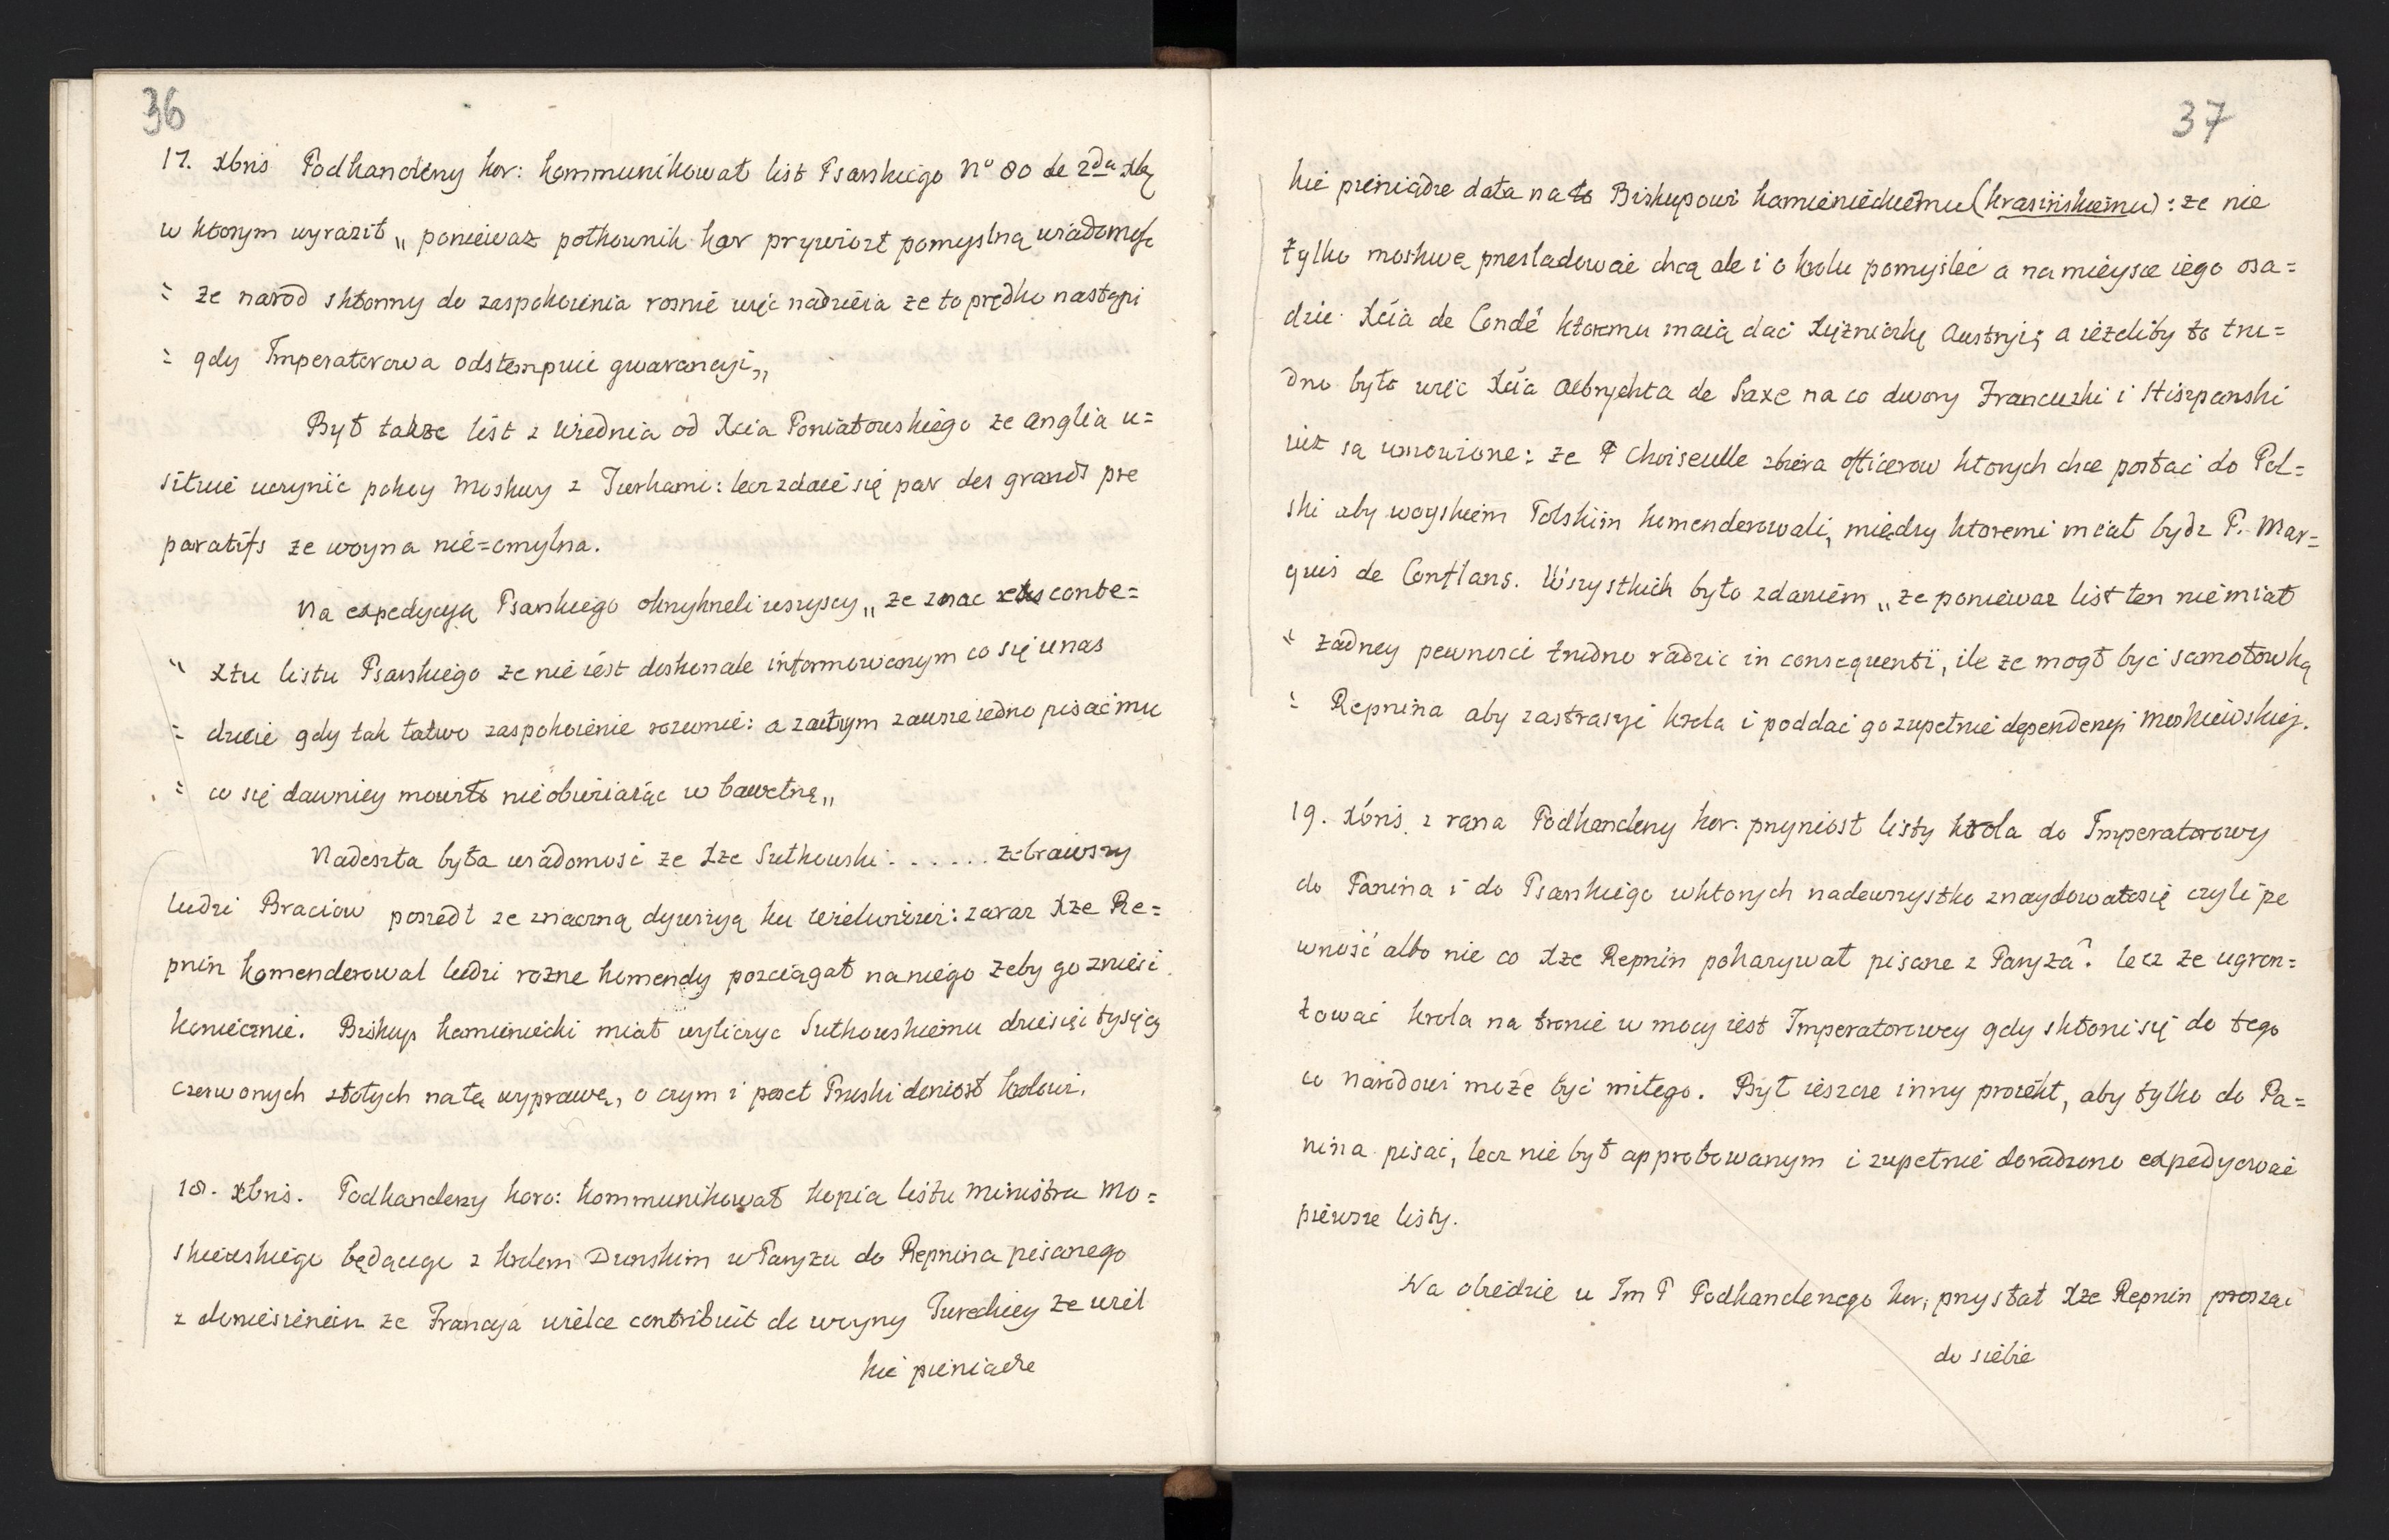 36
17. Xbris Podkanclerny kor: kommunikował list Psarskiego N° 80 de 2da Xbr
w ktorym wyraził „ poniewaz połkownik kar przywiozł pomyslną wiadomość
= ze narod skłonny do zaspokoienia rosnie więc nadzieia ze to prędko nastąpi
= gdy Imperatorowa odstempuie gwarancyi„
Był takze list z Wiednia od Xcia Poniatowskiego ze Anglia u=
siłuie uczynić pokoy Moskwy z Turkami: lecz zdaie się par des grands pre
paratifs ze woyna nie=omylna.
Na expedycyą Psarskiego okrzykneli wszyscy „ ze znac z conte=
" xtu listu Psarskiego ze nie iest doskonale informowanym co się u nas
= dzieie gdy tak łatwo zaspokoienie rozumie: a zatym zawsze iedno pisać mu
= co się dawniey mowiło nieobwiiaiąc w bawełnę„
Nadeszła była wiadomosć ze Xze Sułkowski . . . . . . zebrawszy
ludzi Braciow poszedł ze znaczną dywizyą ku Wieluniowi: zaraz Xze Re=
pnin komenderowal ludzi rozne komendy pozciągał na niego zeby go zniesć
koniecznie. Biskup kamieniecki miał wyliczyc Sułkowskiemu dziesięć tysięcy
czerwonych złotych na tę wyprawę, o czym i poseł Pruski doniosł krolowi.
18. Xbris. Podkanclerzy koro: kommunikował kopia listu ministra Mo=
skiewskiego będącego z krolem Dunskim w Paryzu do Repnina pisanego
z doniesieniem ze Francya wielce contribuit do woyny Tureckiey ze wiel
kie pieniadze
37
kie pieniądze dała na to Biskupowi kamienieckiemu (krasińskiemu): ze nie
tylko moskwę przesladować chcą ale i o krolu pomyslec a na mieysce iego osa=
dzic Xcia de Condé ktoremu maią dać Xiężniczkę Austryi; a iezeliby to tru=
dno było więc Xcia Albrychta de Saxe na co dwory Francuzki i Hiszpanski
iuz są umowione: ze P Choiseulle zbiera officerow ktorych chce posłać do Pol=
ski aby woyskiem Polskim komenderowali, między ktoremi miał bydz P. Mar=
quis de Conflans. Wszystkich było zdaniem „ ze poniewaz list ten nie miał
" zadney pewnosci trudno radzic in consequenti, ile ze mogł być samołowką
= Repnina aby zastraszyć krola i poddać go zupełnie dependencyi moskiewskiej.
19. Xbris z rana Podkanclerzy kor: przyniosł listy krola do Imperatorowy
do Panina i do Psarskiego w ktorych nadewszystko znaydowałosię czyli pe
wność albo nie co Xze Repnin pokazywał pisane z Paryża? lecz ze ugron=
tować krola na tronie w mocy iest Imperatorowey gdy skłoni się do tego
co narodowi moze być miłego. Był ieszcze inny proiekt, aby tylko do Pa=
nina pisać, lecz nie był approbowanym i zupełnie doradzono expedyować
pierwsze listy.
Na obiedzie u Im P Podkanclerzego kor; przysłał Xze Repnin prosząc
do siebie